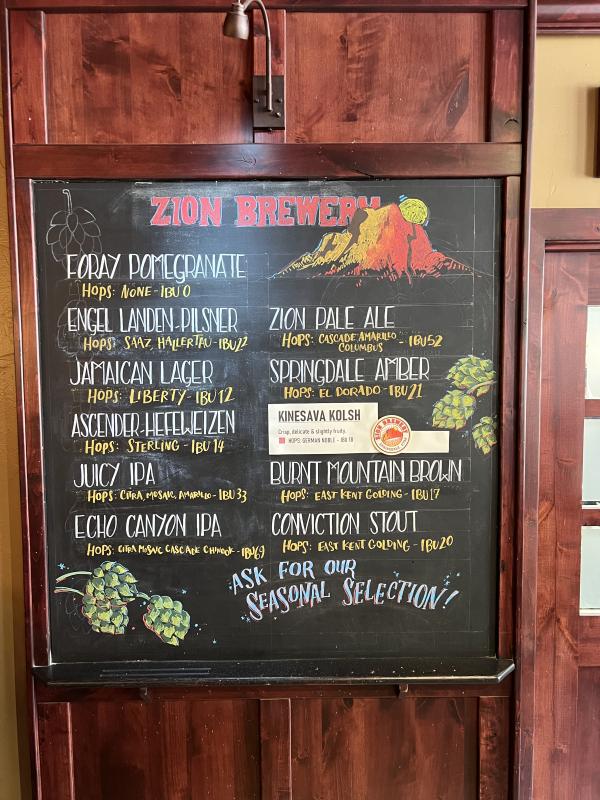 ZION BREWERY
FORAY POMEGRANATE
HOPS: NONE - IBU 0
ENGEL LANDEN-PILSNER
HOPS: SAAZ, HALLERTAU - IBU 22
JAMAICAN LAGER
HOPS: LIBERTY - IBU 12
ASCENDER-HEFEWEIZEN
HOPS: STERLING - IBU 14
JUICY IPA
HOPS: CITRA, MOSAIC, AMARILLO - IBU 33
ECHO CANYON IPA
HOPS: CITRA MOSAIC CASCADE CHINOOK - IBU 69
ZION PALE ALE
HOPS: CASCADE AMARILLO - IBU 52
COLUMBUS
SPRINGDALE AMBER
HOPS: EL DORADO - IBU 21
KINESAVA KOLSH
Crisp, delicate & slightly fruity.
HOPS: GERMAN NOBLE - IBU 18
ZION BREWERY
BURNT MOUNTAIN BROWN
HOPS: EAST KENT GOLDING - IBU 17
CONVICTION STOUT
HOPS: EAST KENT GOLDING - IBU 20
ASK FOR OUR
SEASONAL SELECTION!